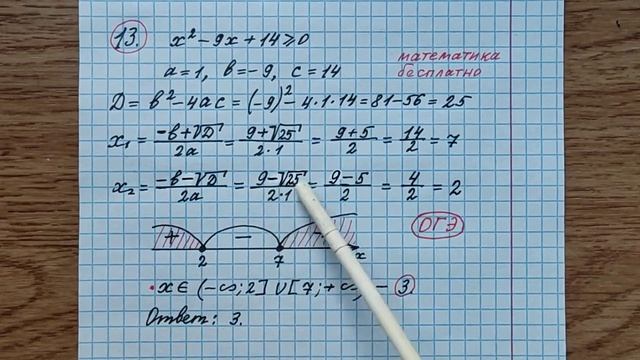 13. x² - 9x + 14 ⩾ 0
математика бесплатно
a = 1, b = -9, c = 14
D = b² - 4ac = (-9)² - 4·1·14 = 81 - 56 = 25
x₁ = (-b + √D)/(2a) = (9 + √25)/(2·1) = (9 + 5)/2 = 14/2 = 7
x₂ = (-b - √D)/(2a) = (9 - √25)/(2·1) = (9 - 5)/2 = 4/2 = 2
+ −
ОГЭ
2 7 x
x ∈ (-∞; 2] ∪ [7; +∞ - 3.
Ответ: 3.